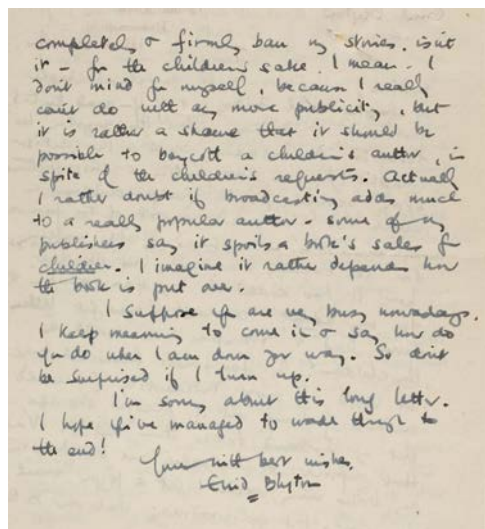 completely & firmly ban my stories, isn't
it - for the children's sake, I mean. I
don't mind for myself, because I really
can't do with any more publicity, but
it is rather a shame that it should be
possible to boycott a children's author, in
spite of the children's requests. Actually
I rather doubt if broadcasting adds much
to a really popular author - some of my
publishers say it spoils a book's sales for
children. I imagine it rather depends how
the book is put over.
I suppose you are very busy nowadays.
I keep meaning to come in & say how do
you do when I am down your way. So don't
be surprised if I turn up.
I'm sorry about this long letter.
I hope you've managed to wade through to
the end!
Yours with best wishes,
Enid Blyton